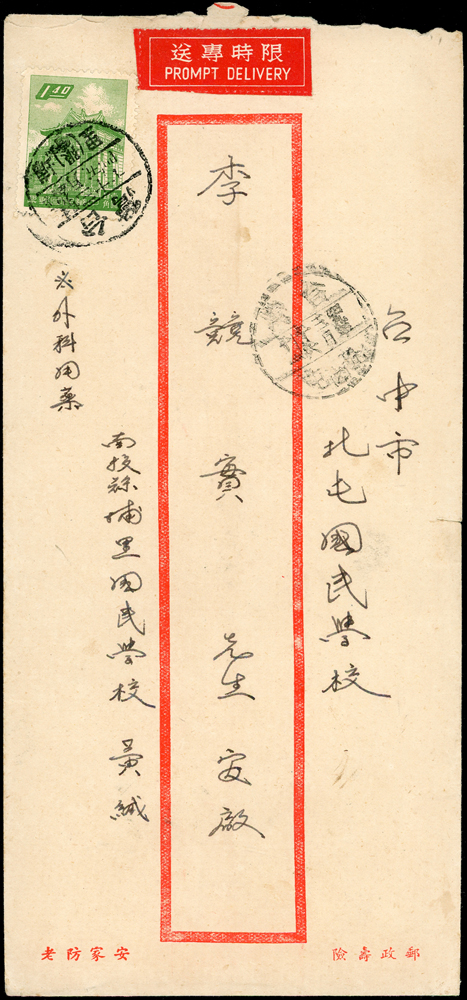 限時專送
PROMPT DELIVERY
1 40
台中市
北屯國民學校
李競實先生
南投縣埔里國民學校 黃緘
外科用藥
郵政壽險
安家防老